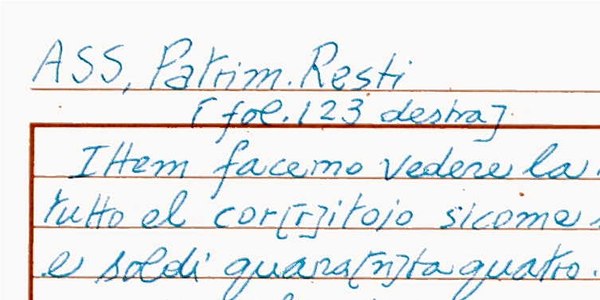 ASS, Patrim. Resti
[fol. 123 destra]
IHem facemo vedere la
tutto el cor[r]itoio sicome
e soldi quara[n]ta quatro.